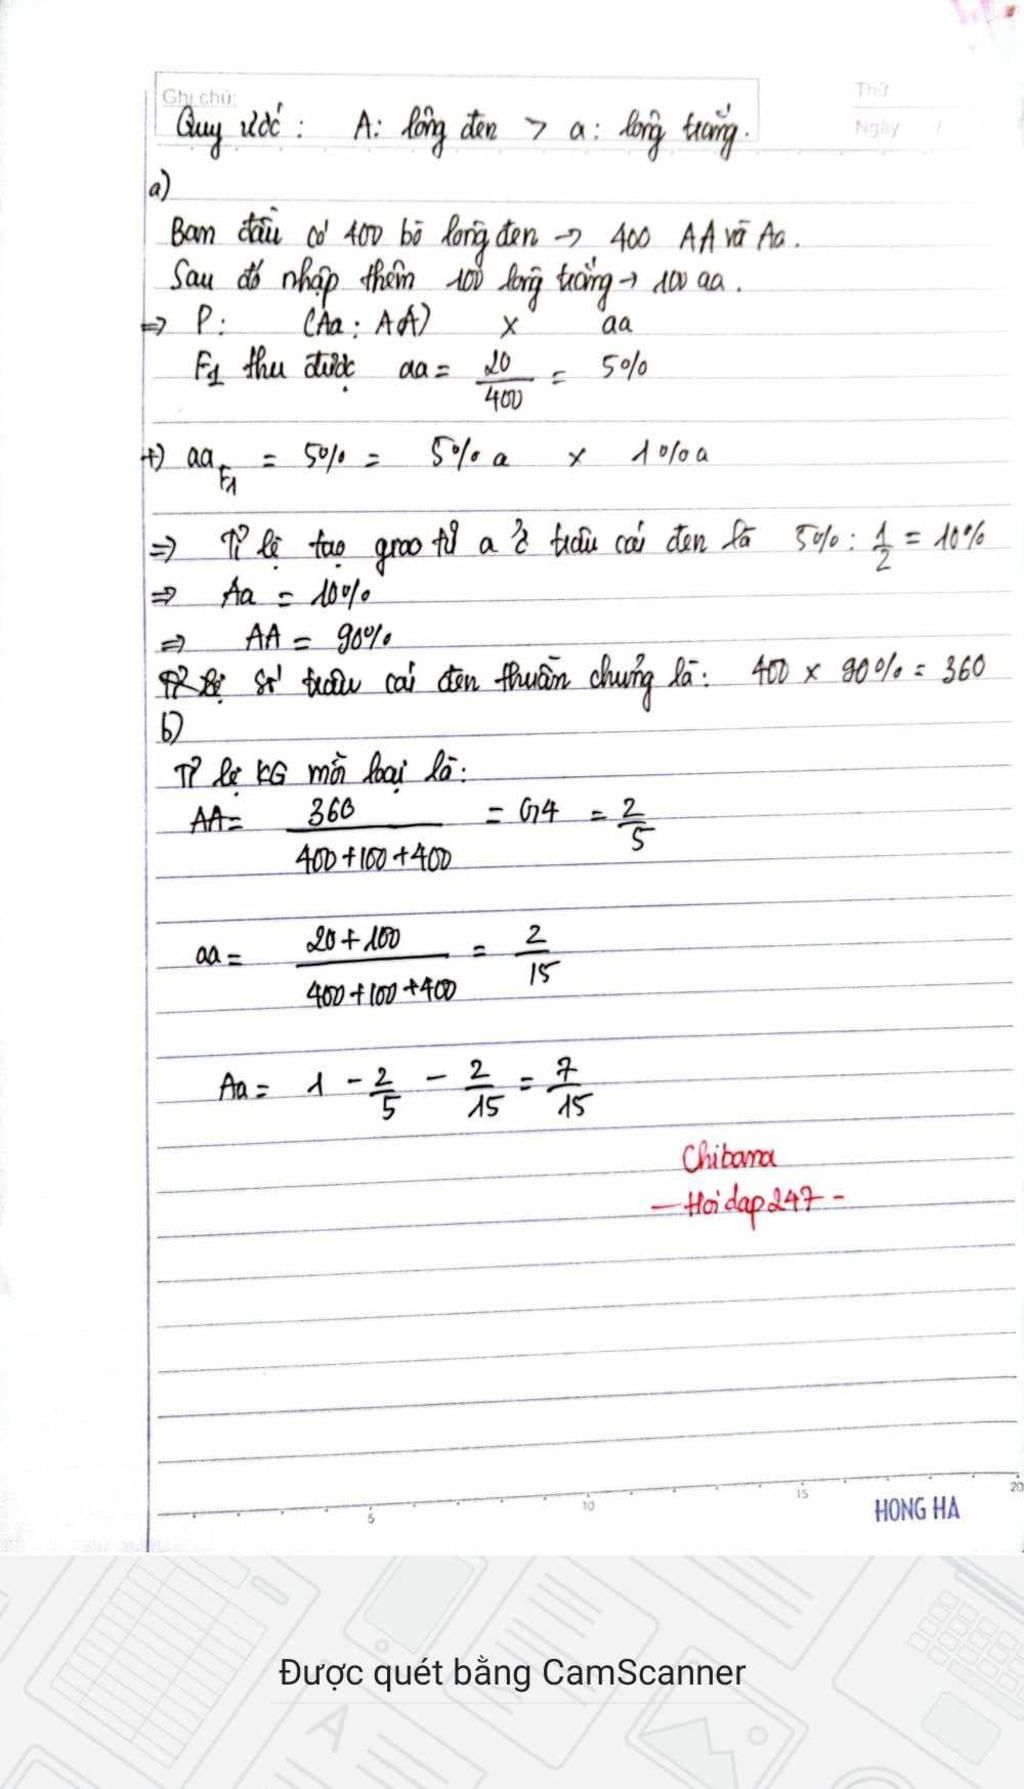 Ghi chú:
Thứ
Ngày /
Quy ước: A: lông đen > a: lông trắng.
a)
Ban đầu có 400 bò lông đen → 400 AA và Aa.
Sau đó nhập thêm 100 lông trắng → 100 aa.
⇒ P: (Aa : AA) × aa
F1 thu được aa = 20/400 = 5%
+) aa F1 = 5% = 5% a × 1%a
⇒ Tỉ lệ tạo giao tử a ở trâu cái đen là 5% : 1/2 = 10%
⇒ Aa = 10%
⇒ AA = 90%
số trâu cái đen thuần chủng là: 400 × 90% = 360
b)
Tỉ lệ KG mỗi loại là:
AA = 360/(400+100+400) = 0,4 = 2/5
aa = (20+100)/(400+100+400) = 2/15
Aa = 1 - 2/5 - 2/15 = 7/15
Chibana
- Hoidap247 -
5 10 15 20
HONG HA
Được quét bằng CamScanner